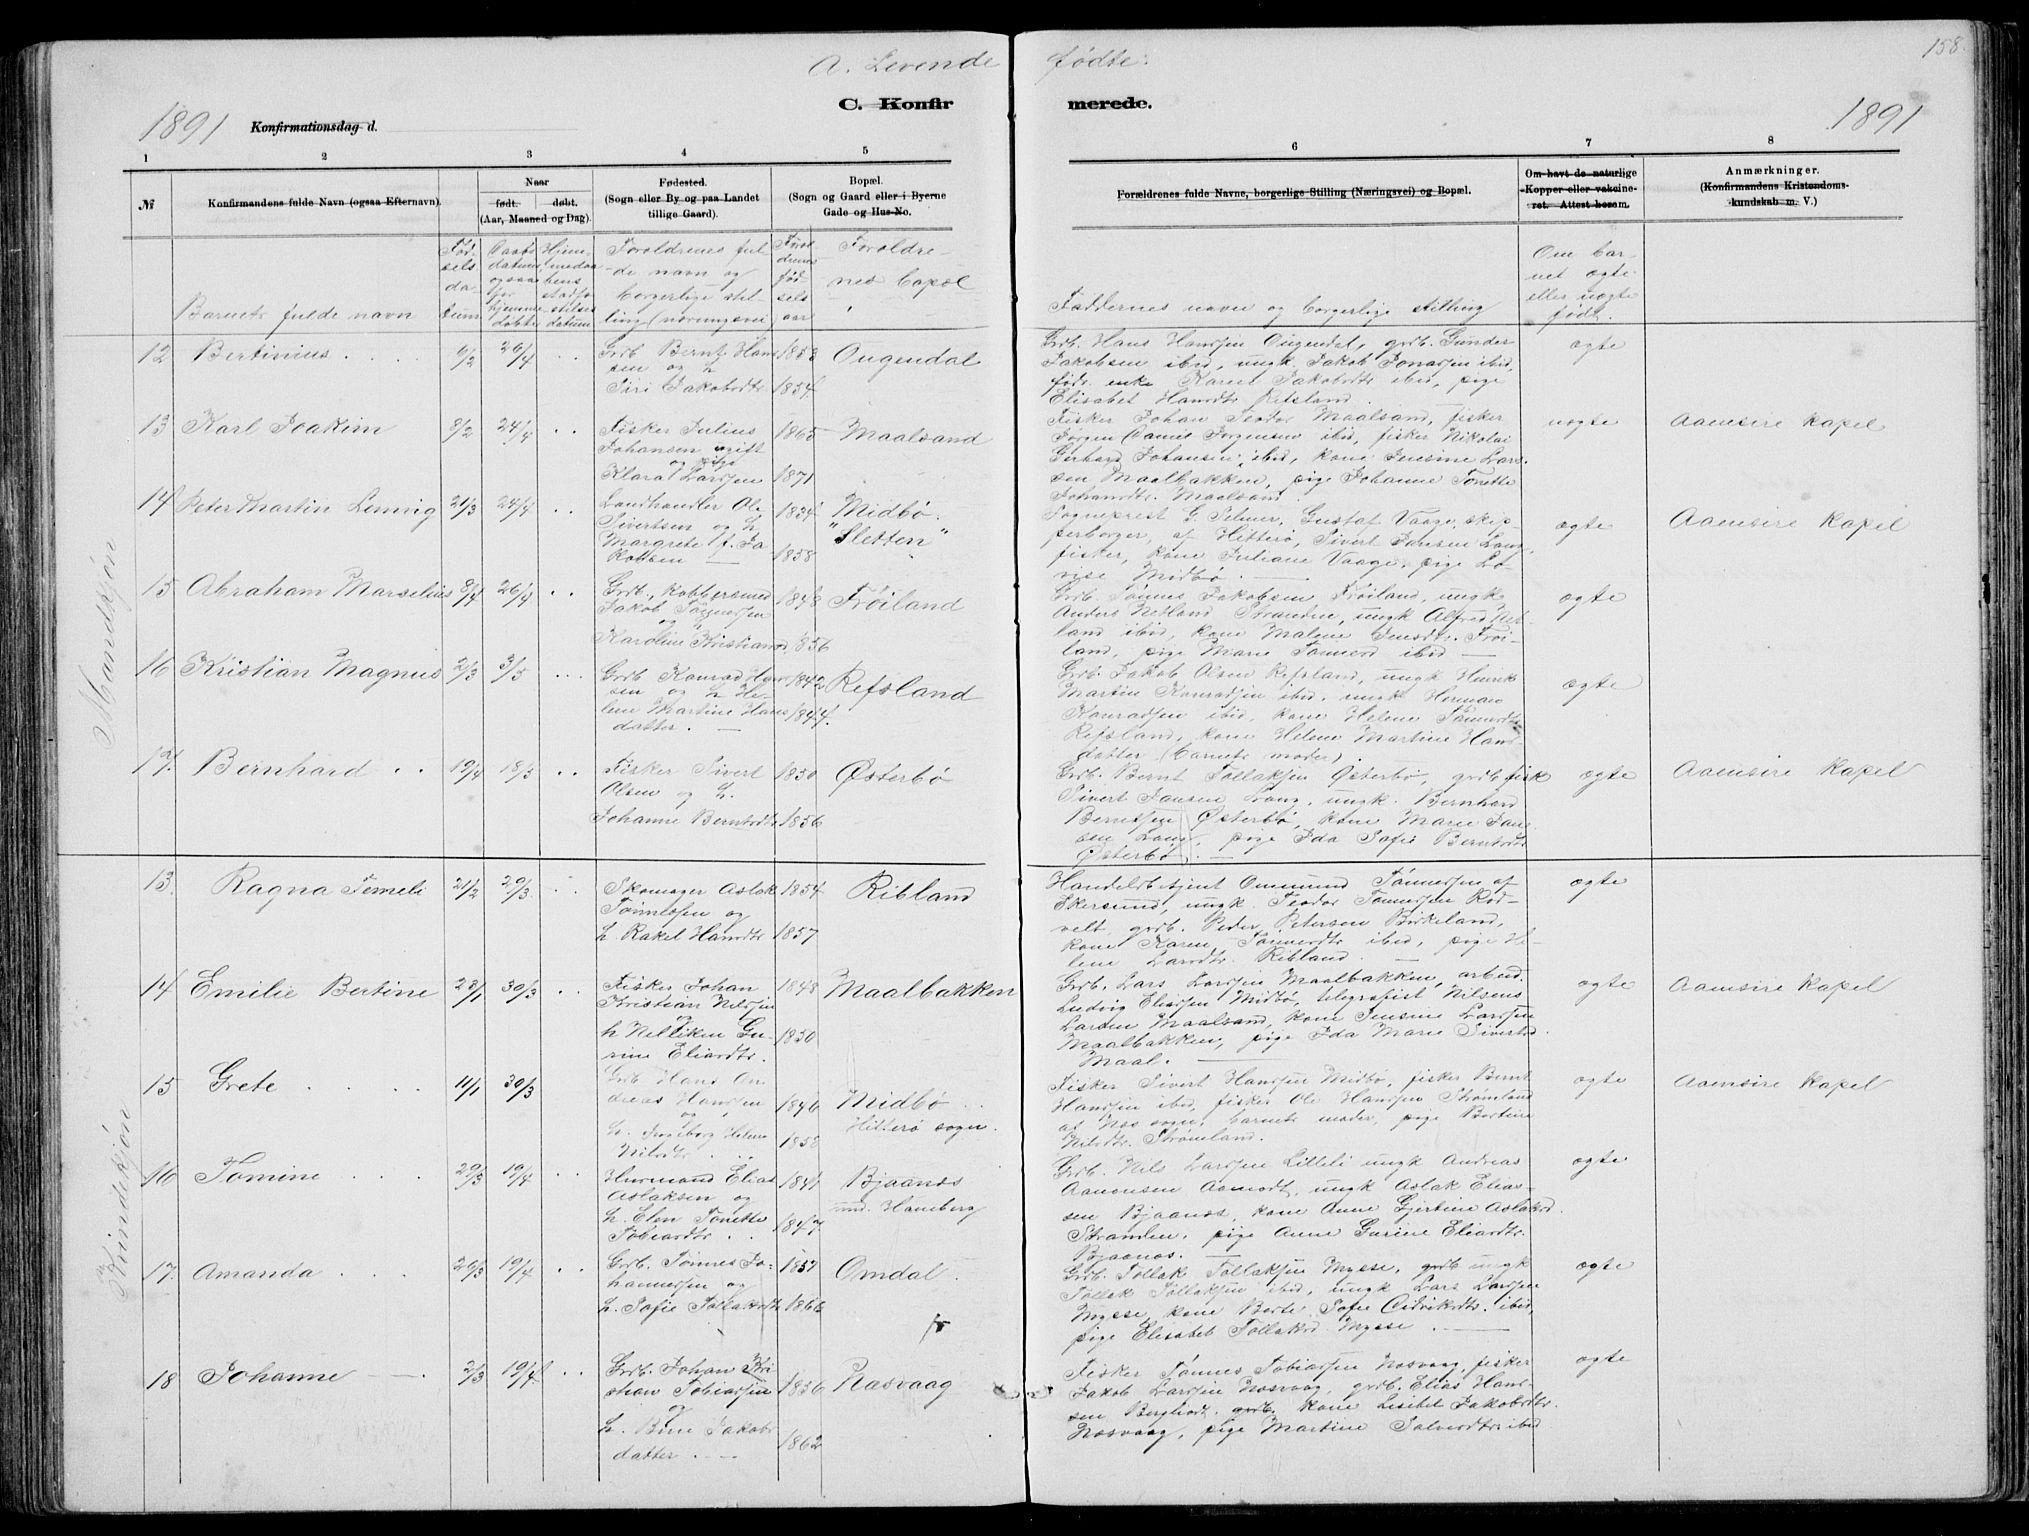 158.
A. Levende fødte:
C. Konfirmerede.
1891 Konfirmationsdag d. 1891
1 2 3 4 5 6 7 8
№
Konfirmandens fulde Navn (ogsaa Efternavn).
Naar
født. døbt.
(Aar, Maaned og Dag).
Fødested.
(Sogn eller By og paa Landet
tillige Gaard).
Bopæl.
(Sogn og Gaard eller i Byerne
Gade og Hus-No.
Forældrenes fulde Navne, borgerlige Stilling (Næringsvei) og Bopæl.
Om havt de naturlige
Kopper eller vaccine-
ret. Attest herom.
Anmærkninger.
(Konfirmandens Kristendoms-
kundskab m. V.)
Barnets fulde navn
Fød-
sels
da-
tum
Daabs
datum,
ogsaa
for
hjemme
døbte
Hjem-
medaa
bens
stadfæ
stelses
datum
Forældrenes ful-
de navn og
borgerlige stil-
ling (næringsvei
Foræl
drenes
fød-
sels
aar
Foræld­re-
nes bopæl
Faddernes navn og borgerlige stilling
Om bar-
net ægte
eller uægte
født.
Mandkjøn
12 Bertinius 6/2 26/4
Grb Bernt Han-
sen og h
Siri Jakobsdtr
1853
1854
Ougendal
Grb. Hans Hansen Ougendal, grb. Gunder
Jakobsen ibid, ungk. Jakob Jonassen ibid,
født. enke Karen Jakobsdtr ibid, pige
Elisabet Hansdtr Refsland.
ægte
13 Karl Joakim 8/2 24/4
Fisker Julius
Johansen ugift
og pige
Klara Larssen
1865
1871
Maalsand
Fisker Johan Teodor Maalsand, fisker
Jørgen Daniel Jørgensen ibid, fisker Nikolai
Gerhard Johansen ibid, kone Jensine Lars-
sen Maalbakken, pige Johanne Tonette
Johansdtr. Maalsand.
uægte
Aamsire Kapel
14 Peter Martin Lennig 21/3 24/4
Landhandler Ole
Sivertsen og h
Margrete f. Ja
kobsen
1834
1858
Midbø.
"Sletten"
Sogneprest G. Selmer, Gustaf Vaage, skip-
perborger, af Hitterø, Sivert Jansen Lang,
fisker, kone Juliane Vaage, pige Lo-
vise Midbø.
ægte
Aamsire Kapel
15 Abraham Marselius 8/4 26/4
Grb., Kobbersmed
Jakob Tønnessen
og h
Karoline Kristiansd
1848
1856
Frøiland
Grb Tønnes Jakobsen Frøiland, ungk
Anders Netland Stranden, ungk Alfred Net-
land ibid, kone Malene Jensdtr. Frøi-
land, pige Marie Tønnesd ibid
ægte
16 Kristian Magnus 21/3 3/5
Grb Konrad Han-
sen og h He-
lene Martine Hans
datter.
1842
1844.
Refsland
Grb. Jakob Olsen Refsland, ungk Henrik
Martin Konradsen ibid. ungk Herman
Konradsen ibid, kone Helene Tønnesdtr
Refsland, kone Helene Martine Hans
datter (barnets moder).
ægte
17. Bernhard 19/4 18/5
Fisker Sivert
Olsen og h.
Johanne Berntsdtr
1850
1856
Østerbø
Grb. Bernt Tollaksen Østerbø, grdb fisk
Sivert Jansen Lang, ungk. Bernhard
Berntsen Østerbø, kone Marie Jan-
sen Lang, pige Ida Sofie Berntsdtr
Østerbø.
ægte
Aamsire Kapel
Kvindekjøn
13. Ragna Tomele 21/2 29/3.
Skomager Aslak
Tønnesen og
h. Rakel Hansdtr
1854
1857
Ribland
Handelsbetjent Ommund Tønnessen af
Ekersund, ungk. Teodor Tønnessen Rød-
velt, grb. Peder Petersen Birkeland,
kone Karen Tønnesdtr ibid, pige He-
lene Larsdtr. Ribland.
ægte
14 Emilie Bertine 28/1 30/3
Fisker Johan
Kristian Nilssen
og
h Nelliken Gu-
rine Eliasdtr.
1848
1850
Maalbakken
Grb. Lars Larssen Maalbakken, arbeid.
Ludvig Eliassen Midbø, telegrafist Nilsens
Larsen Maalsand, kone Jensine Larssen
Maalbakken, pige Ida Marie Sivertsd.
Maal.
ægte
Aamsire Kapel
15 Grete 11/1 30/3
Grb Hans An-
dreas Hanssen
og
h. Ingeborg Helene
Nilsdtr
1846
1858
Midbø
Hitterø sogn.
Fisker Sivert Hanssen Midbø, fisker Bernt
Hanssen ibid, fisker Ole Hanssen Strømland
af Nes sogn, barnets moder, pige Bertine
Nilsdtr. Strømland.
ægte
Aamsire Kapel
16 Tomine 29/3 19/4
Husmand Elias
Aslaksen og
h. Elen Tonette
Tobiasdtr
1841
1847
Bjaanes
und. Hamberg
Grb. Nils Larssen Lilleli ungk Andreas
Aanonsen Aamodt, ungk Aslak Elias-
sen Bjaanes, kone Anne Gjertine Aslaksd.
Stranden, pige Anne Gurine Eliasdtr.
Bjaanes.
ægte
17. Amanda 26/3 19/4
Grb. Tønnes Jo-
hannessen og
h. Sofie Tollaksdtr
1857
1866
Omdal
Grb. Tollak Tollaksen Mysse, grdb ungk
Tollak Tollaksen ibid, ungk Lars Larssen
Mysse, kone Berte Sofie Didriksdtr. ibid,
pige Elisabet Tollaksd. Mysse.
ægte
18 Johanne 2/3 19/4
Grb. Johan Kri
stian Tobiassen
og
h. Bine Jakobs
datter.
1856
1862
Rasvaag
Fisker Tønnes Tobiassen Rasvaag, fisker
Jakob Larssen Rasvaag, grdb. Elias Hans-
sen Berghodt. grdb. kone Lisibet Jakobsdtr.
Rasvaag, pige Martine Salvesdtr ibid.
ægte